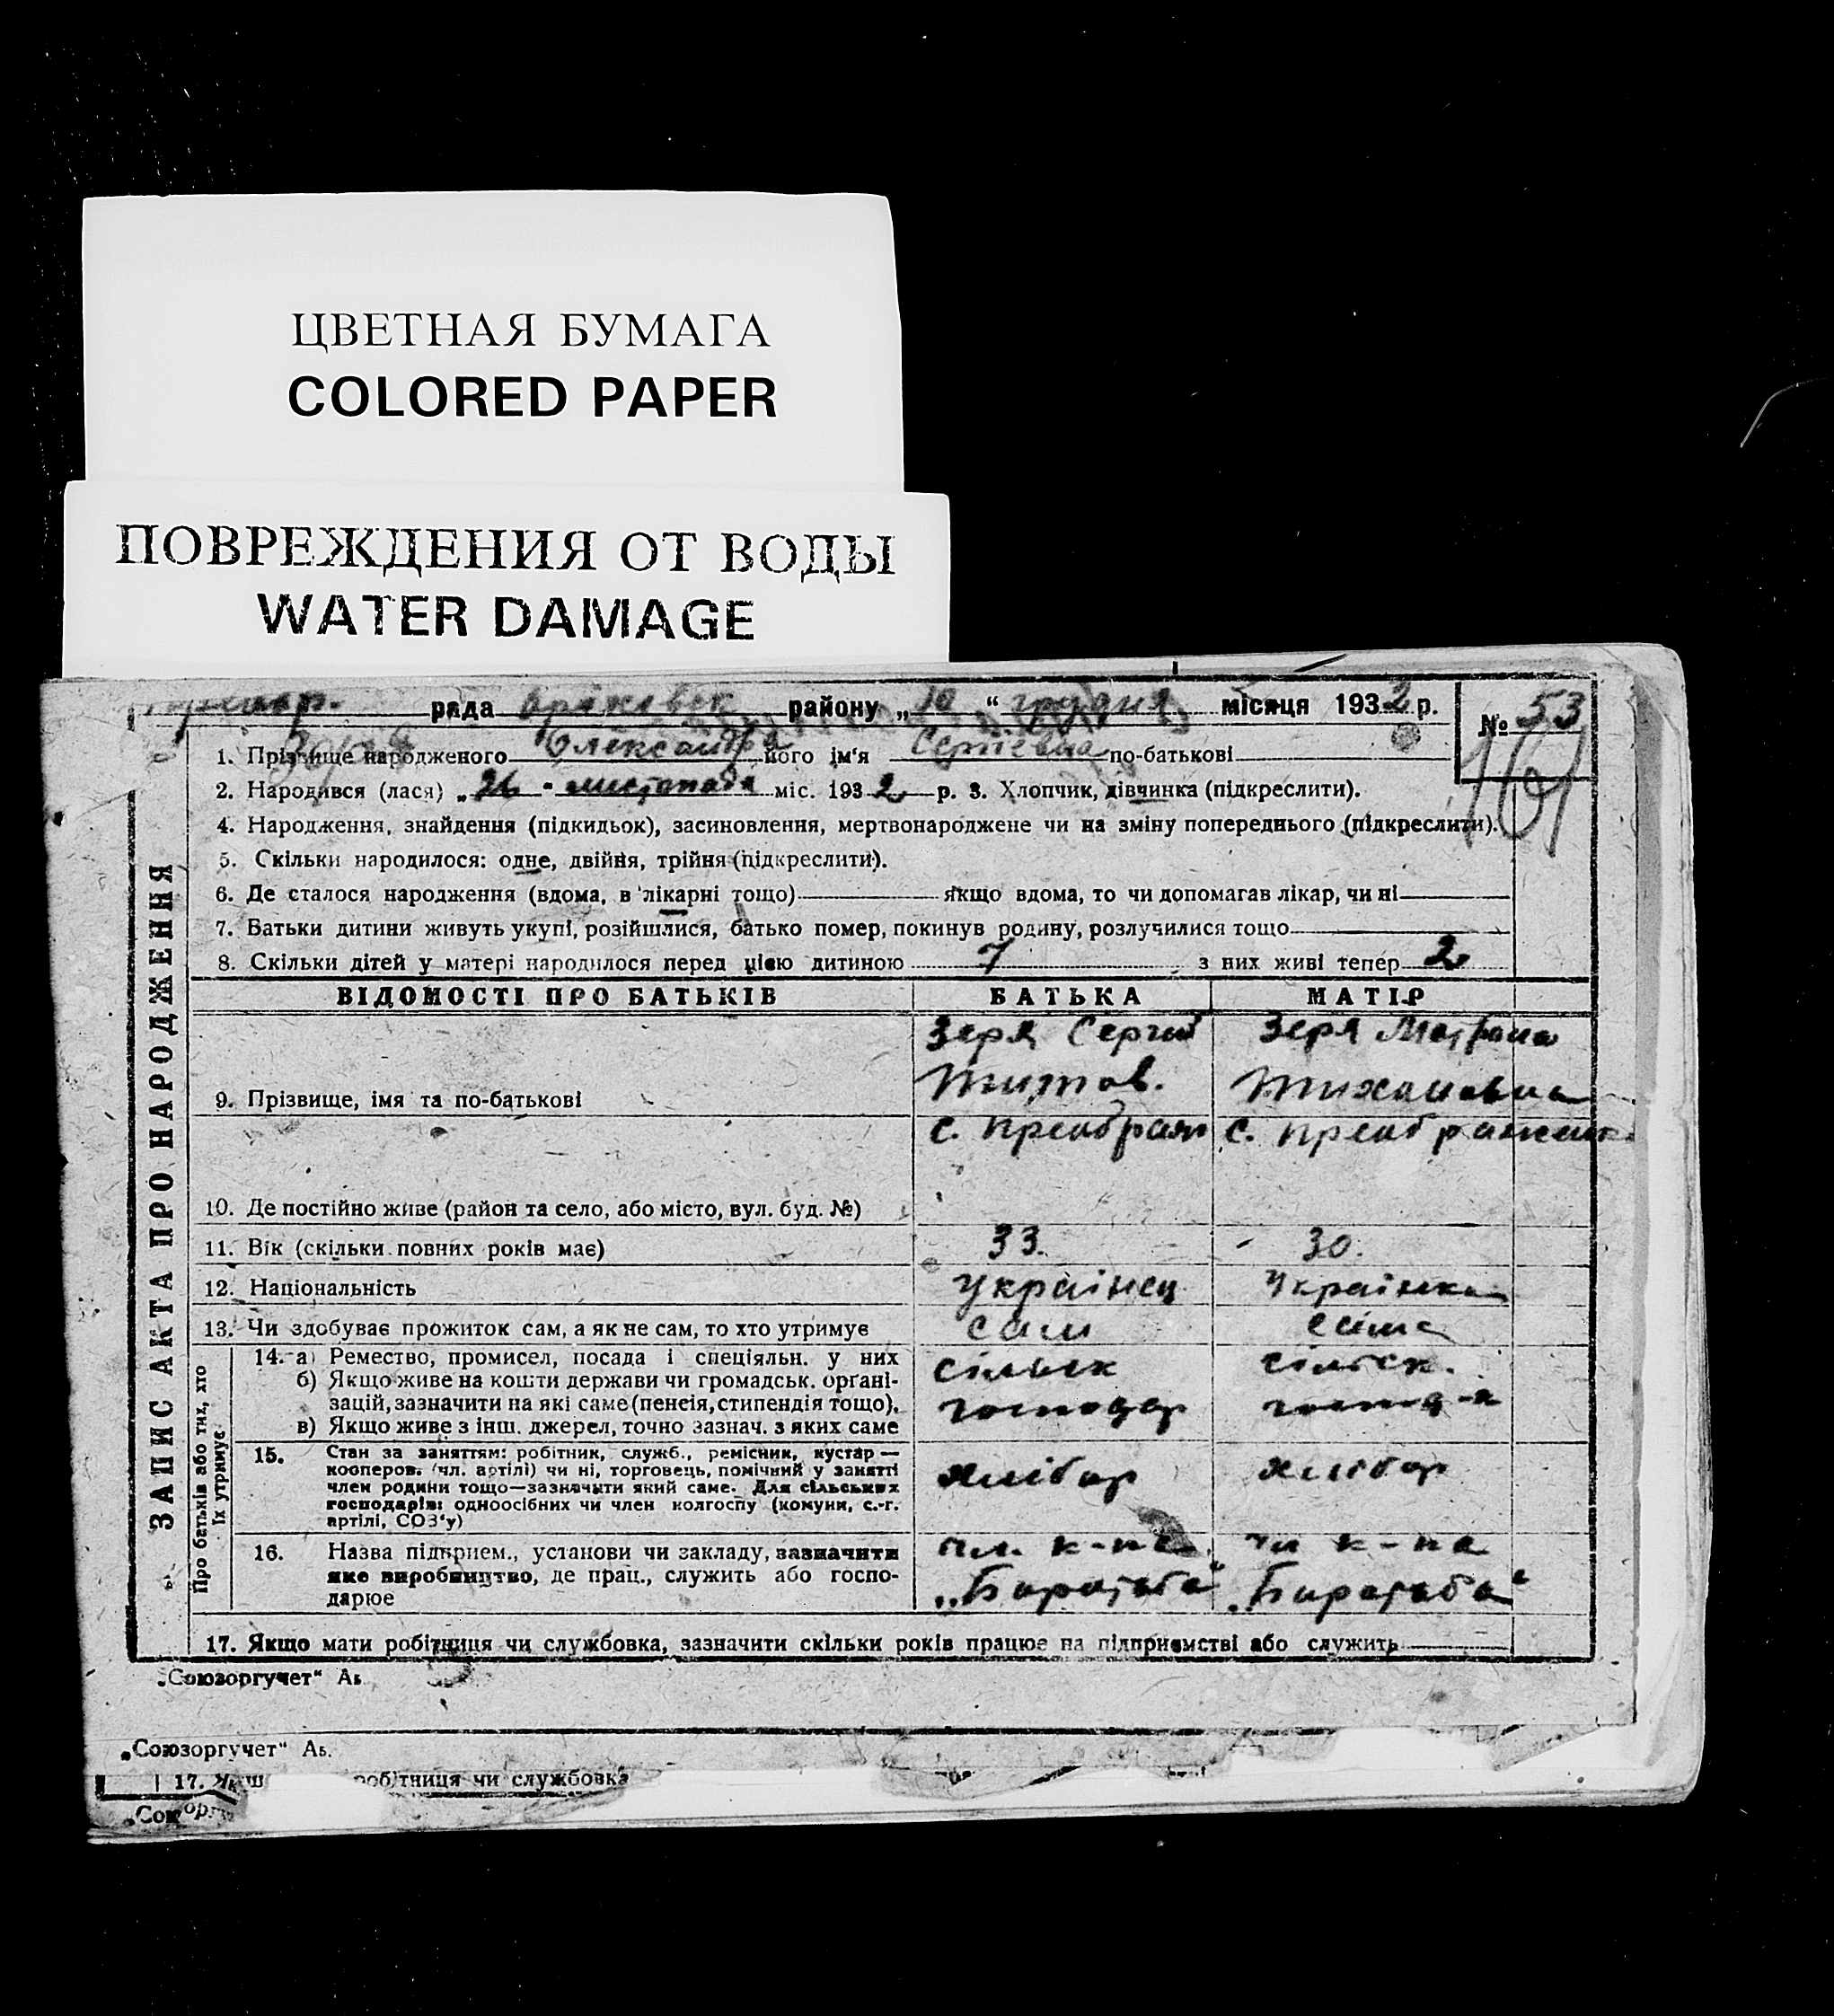 ЦВЕТНАЯ БУМАГА
COLORED PAPER
ПОВРЕЖДЕНИЯ ОТ ВОДЫ
WATER DAMAGE
рада Оріховськ району „10“ грудня місяця 1932 р.
№ 53
101
1. Прізвище народженого Олександра його ім'я Сергіевна по-батькові
2. Народився (лася) „26“ листопада міс. 1932 р. 3. Хлопчик, дівчинка (підкреслити).
4. Народження, знайдення (підкидьок), засиновлення, мертвонароджене чи на зміну попереднього (підкреслити).
5. Скільки народилося: одне, двійня, трійня (підкреслити).
6. Де сталося народження (вдома, в лікарні тощо) якщо вдома, то чи допомагав лікар, чи ні
7. Батьки дитини живуть укупі, розійшлися, батько помер, покинув родину, розлучилися тощо
8. Скільки дітей у матері народилося перед цією дитиною 7 з них живі тепер 2
ЗАПИС АКТА ПРО НАРОДЖЕННЯ
ВІДОМОСТІ ПРО БАТЬКІВ БАТЬКА МАТІР
Зеря Сергій Зеря Мотрона
Титов. Тихоновна
9. Прізвище, імя та по-батькові
с. Преображ с. Преображенка
10. Де постійно живе (район та село, або місто, вул. буд. №)
11. Вік (скільки повних років має) 33. 30.
12. Національність Українец Українка
13. Чи здобуває прожиток сам, а як не сам, то хто утримує сам сама
Про батьків або тих, хто
їх утримує
14. а) Ремество, промисел, посада і спеціяльн. у них сільськ сільськ.
б) Якщо живе на кошти держави чи громадськ. органі-
зацій, зазначити на які саме (пенсія, стипендія тощо). господар господ-я
в) Якщо живе з інш. джерел, точно зазнач. з яких саме
15. Стан за заняттям: робітник, служб., ремісник, кустар —
кооперов. (чл. артілі) чи ні, торговець, помічний у занятті
член родини тощо—зазначити який саме. Для сільських
господарів: одноосібних чи член колгоспу (комуни, с.-г.
артілі, СОЗ'у)
хлібор хлібор
16. Назва підприем., установи чи закладу, зазначити чл. к-па чл к-па
яке виробництво, де прац., служить або госпо-
дарює „Боротьба“ „Боротьба“
17. Якщо мати робітниця чи службовка, зазначити скільки років працює на підприємстві або служить
„Союзоргучет“ Аь
„Союзоргучет“ Аь.
17. Якш робітниця чи службовка
„Союзорг